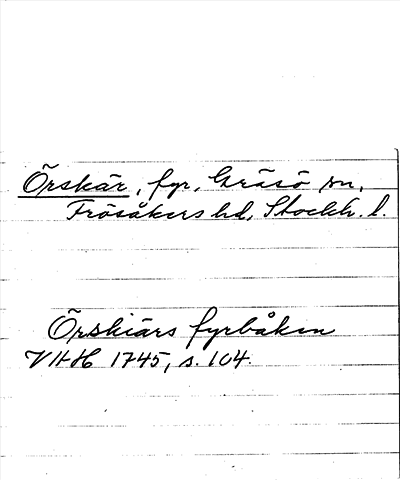 Örskär, fyr, Gräsö sn,
Frösåkers hd, Stockh. l.
Örskiärs fyrbåken
VHH 1745, s. 104.